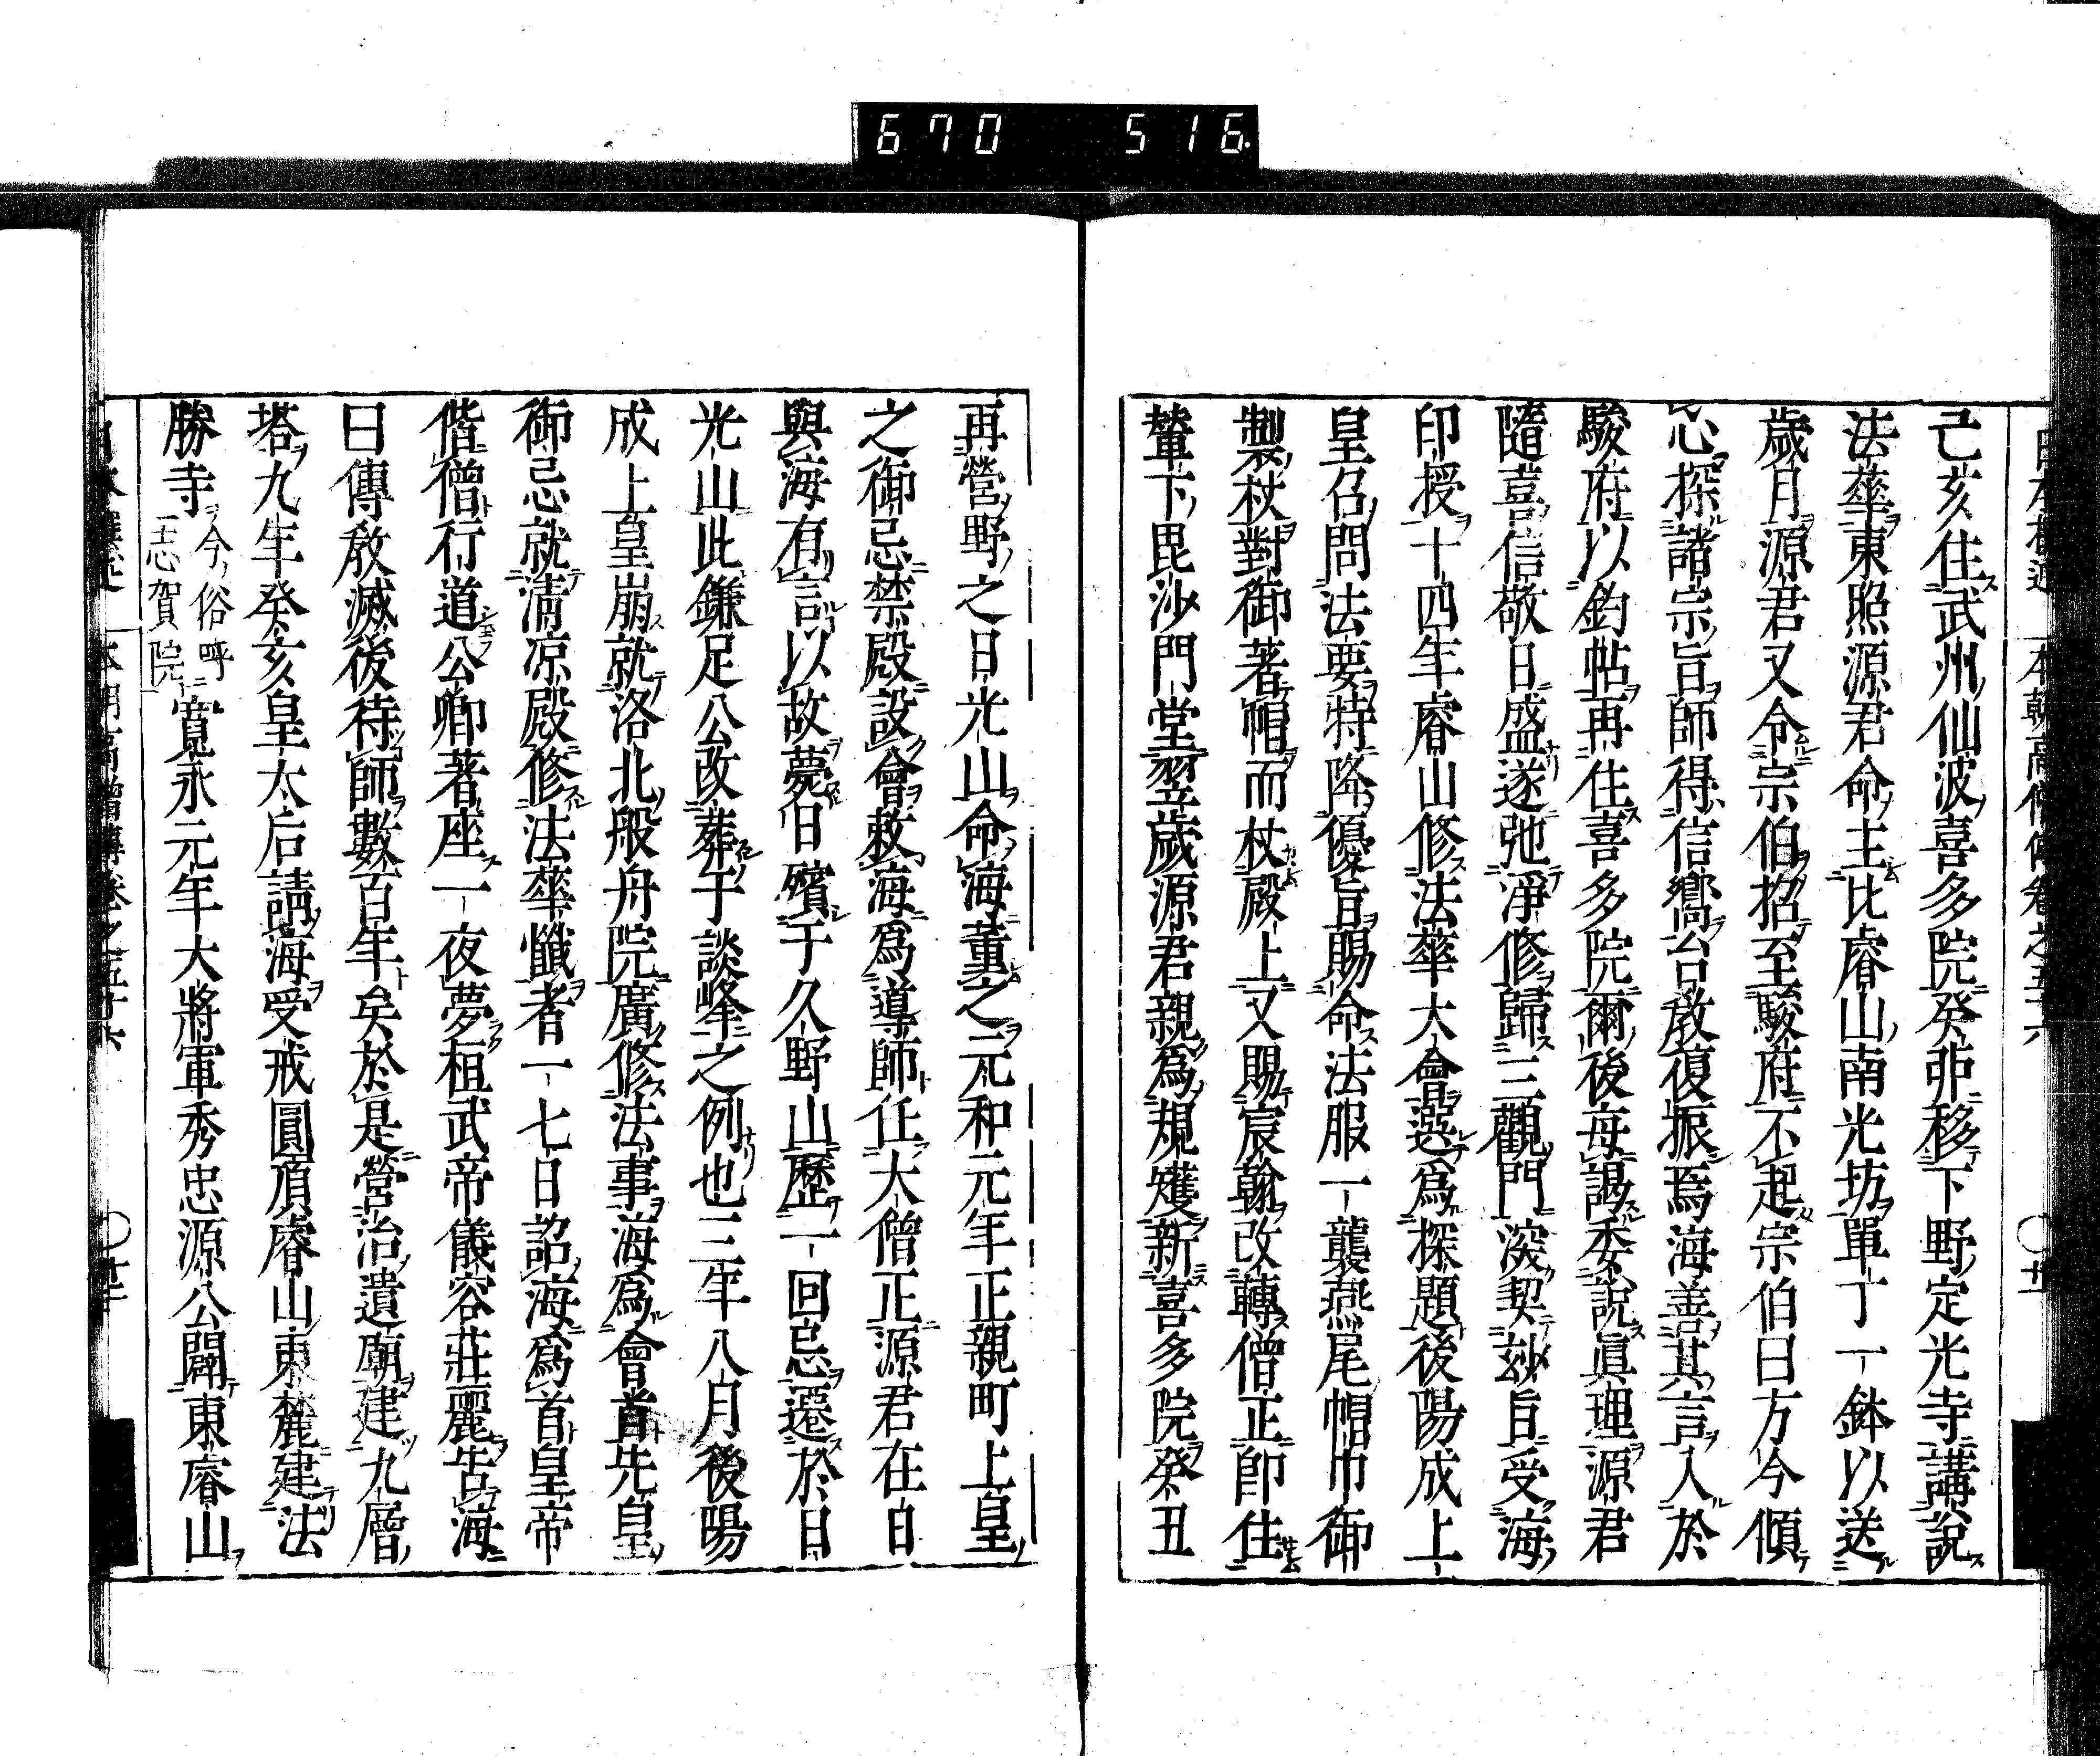 670 516
己亥住武州仙波喜多院癸卯移下野定光寺講說
法華東照源君命主比睿山南光坊單丁一鉢以送
歲月源君又令宗伯招至駿府不起宗伯曰方今傾
心探諸宗旨師得信嚮台教復振焉海善其言入於
駿府以鈞帖再住喜多院爾後每謁委說眞理源君
隨喜信敬日盛遂弛淨修歸三觀門深契玅旨受海
印授十四年睿山修法華大會選爲探題後陽成上
皇召問法要特降優旨賜命法服一襲燕尾帽巾御
製杖對御著帽而杖殿上又賜宸翰改轉僧正卽住
輦下毘沙門堂翌歲源君親爲規矱新喜多院癸丑
再營野之日光山命海董之元和元年正親町上皇
之御忌禁殿設會敕海爲導師任大僧正源君在日
與海有言以故薨旧殯于久野山歷一回忌遷於日
光山此鎌足公改葬于談峰之例也三年八月後陽
成上皇崩就洛北般舟院廣修法事海爲會首先皇
御忌就淸凉殿修法華懺者一七日詔海爲首皇帝
偕僧行道公卿著座一夜夢桓武帝儀容莊麗告海
曰傳教滅後待師數百年矣於是營治遺廟建九層
塔九年癸亥皇太后請海受戒圓頂睿山東麓建法
勝寺今俗呼志賀院寬永元年大將軍秀忠源公闢東睿山
本朝高僧傳卷之五十六